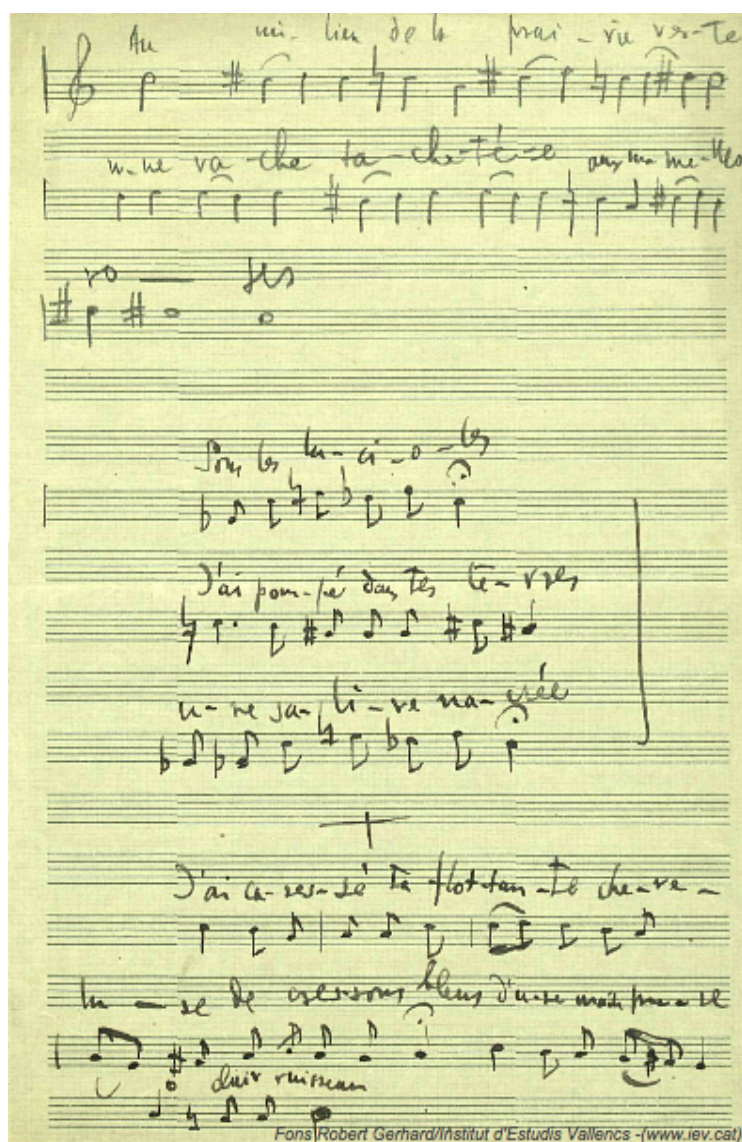 Au mi-lieu de la prai-rie ver-te
u-ne va-che ta-che-té-e aux ma-me-lles
ro — ses
Sous les lu-ci-o-les
J'ai pom-pé dans tes lè-vres
u-ne sa-li-ve na-crée
J'ai ca-res-sé ta flot-tan-te che-ve-
lu-re de cres-sons bleus d'u-ne main pieu-se
clair ruisseau
Fons Robert Gerhard/Institut d'Estudis Vallencs -(www.iev.cat)